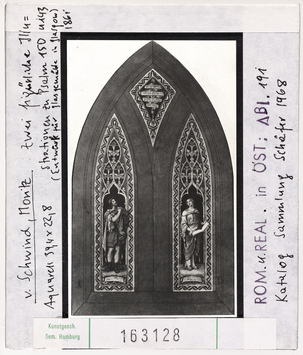 v. Schwind, Moritz zwei figürliche Illu=
strationen zu Psalm 150 und 43
(Entwurf für Glasgemälde in Glasgow)
1861
Aquarell 39,4 x 22,8
ROM. u. REAL. in ÖST; Abl. 191
Katalog Sammlung Schäfer 1968
Kunstgesch.
Sem. Hamburg
163128